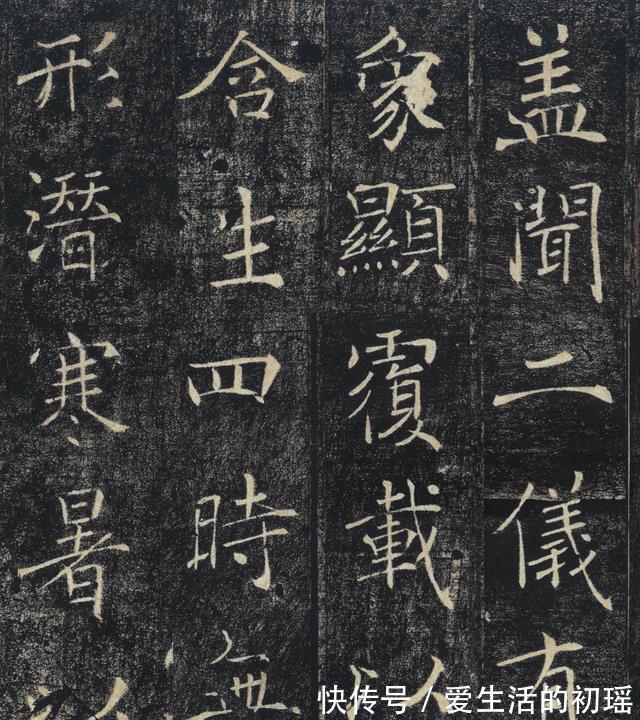 盖聞二儀有
象顯覆載以
含生四時無
形潛寒暑以
快传号 / 爱生活的初瑶